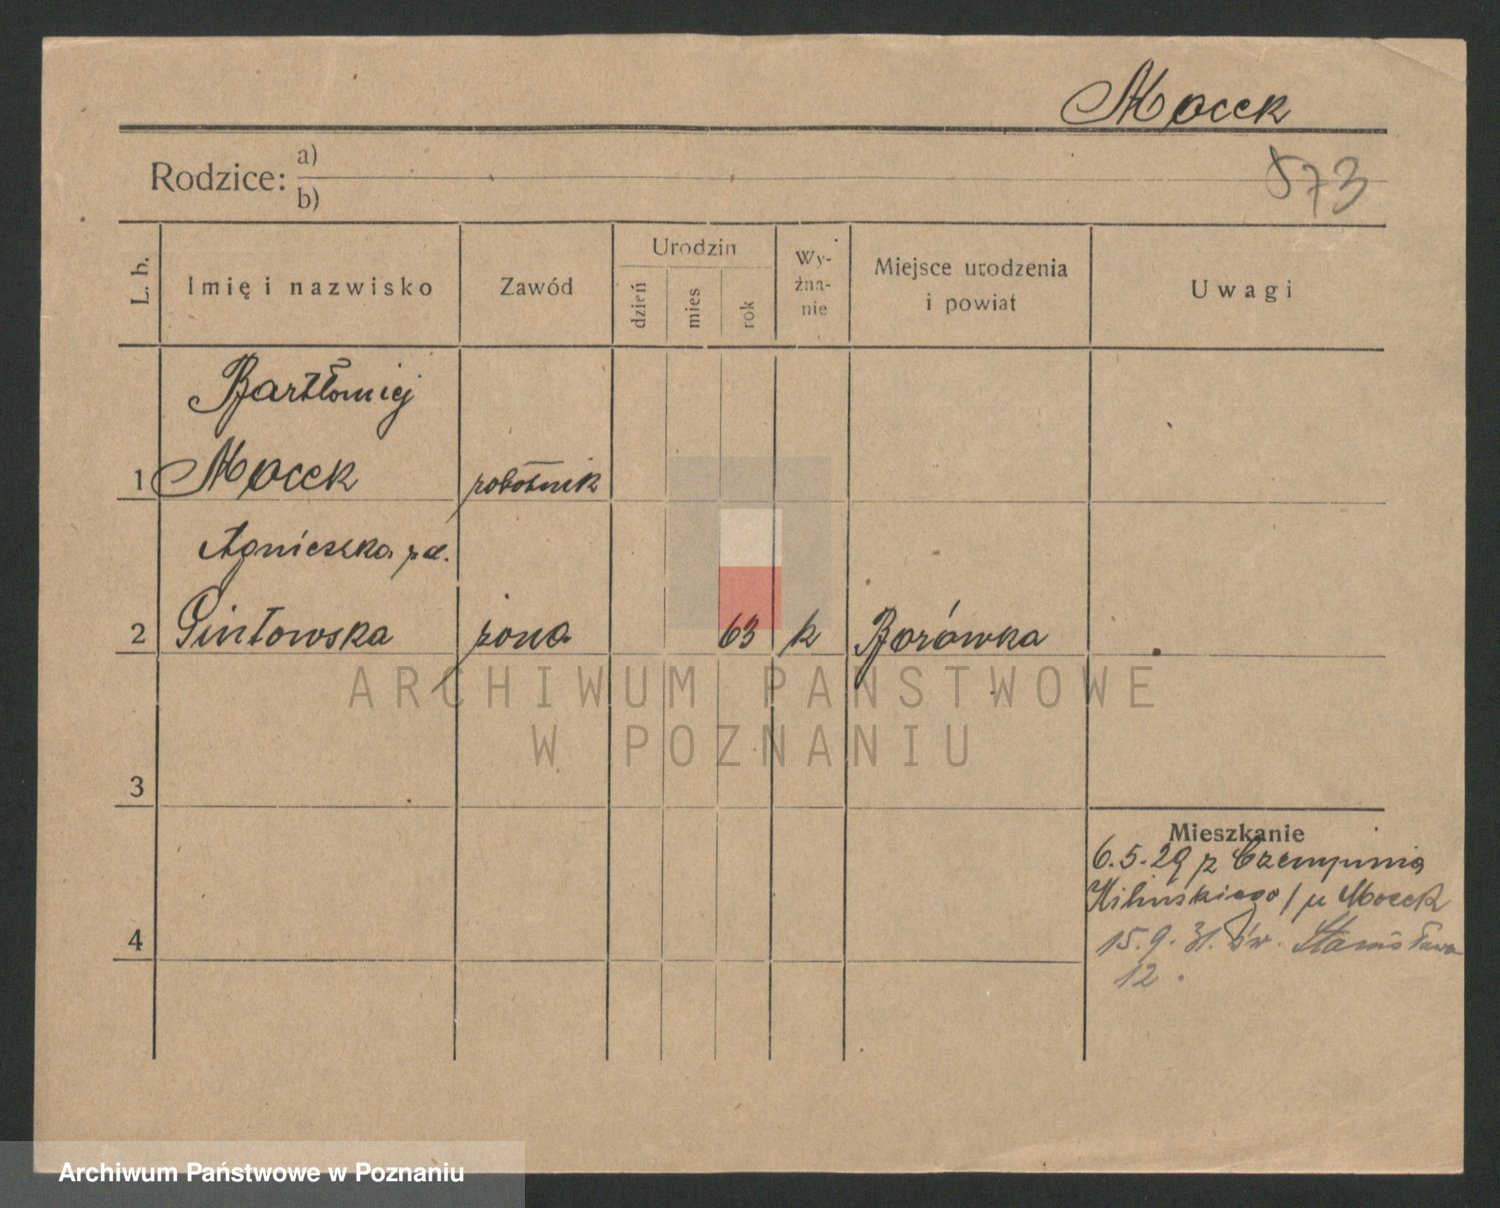 Mocek
Rodzice: a)
b)
573
L. b.
Imię i nazwisko
Zawód
Urodzin
dzień
mies
rok
Wy-
żna-
nie
Miejsce urodzenia
i powiat
Uwagi
Bartłomiej
1 Mocek robotnik
Agnieszka zd.
2 żona 63 k Borówka
3
4
Mieszkanie
6.5.29 z Czempinia
Kilińskiego / u Mocek
15.9.31. św. Stanisława
12.
ARCHIWUM PAŃSTWOWE
W POZNANIU
Archiwum Państwowe w Poznaniu